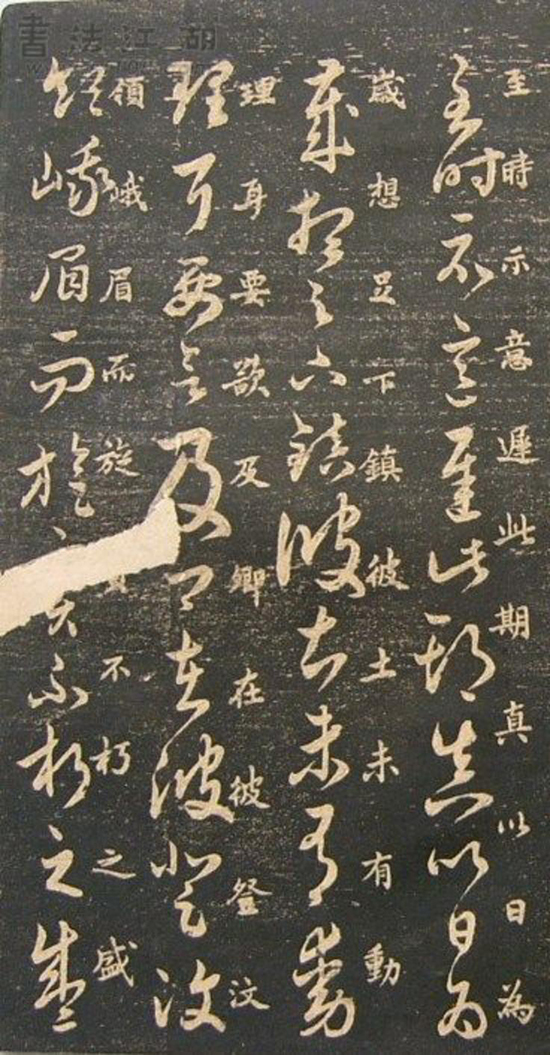 至時示意遲此期真以日為
至時示意遲此期真以日為
歲想足下鎮彼土未有動
歲想足下鎮彼土未有動
理耳要欲及卿在彼登汶
理耳要欲及卿在彼登汶
領峨眉而旋不朽之盛
領峨眉而旋不朽之盛
書法江湖